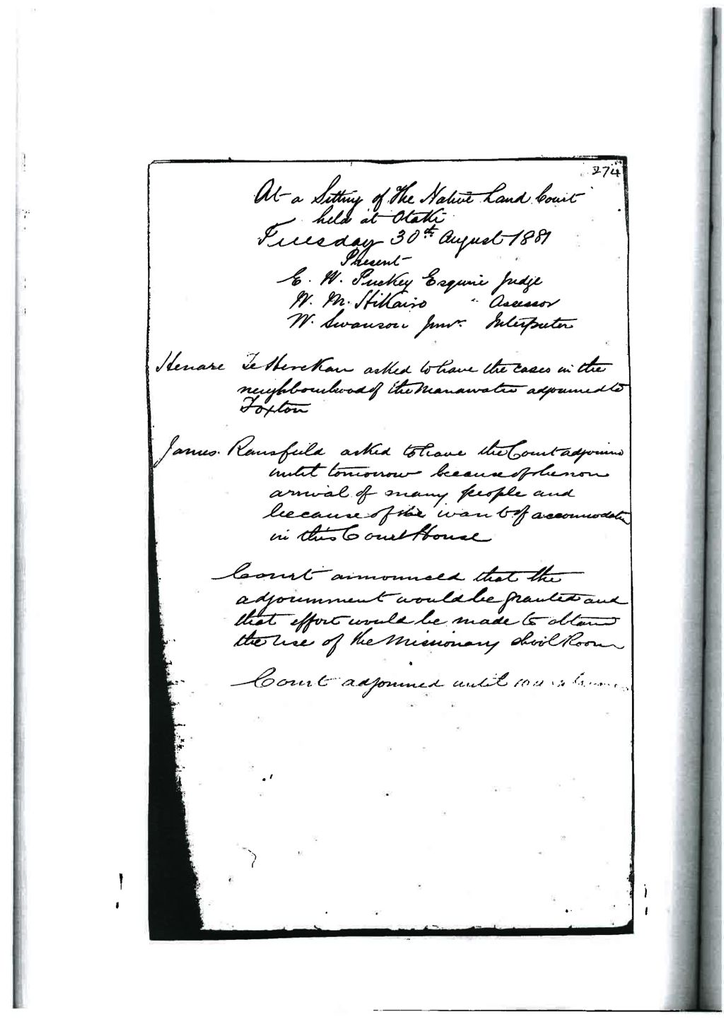 274
At a Sitting of the Native Land Court
held at Otaki
Tuesday 30th August 1881
Present
E. W. Puckey Esquire Judge
W. M. Hikairo " Assessor
W. Swanson Junr. Interpreter
Henare Te Herekau asked to have the cases in the
neighbourhood of the Manawatu adjourned to
Foxton
James Ransfield asked to have the Court adjourned
until tomorrow because of the non
arrival of many people and
because of the want of accomodation
in this Court House
Court announced that the
adjournment would be granted and
that effort would be made to obtain
the use of the Missionary School Room
Court adjourned until